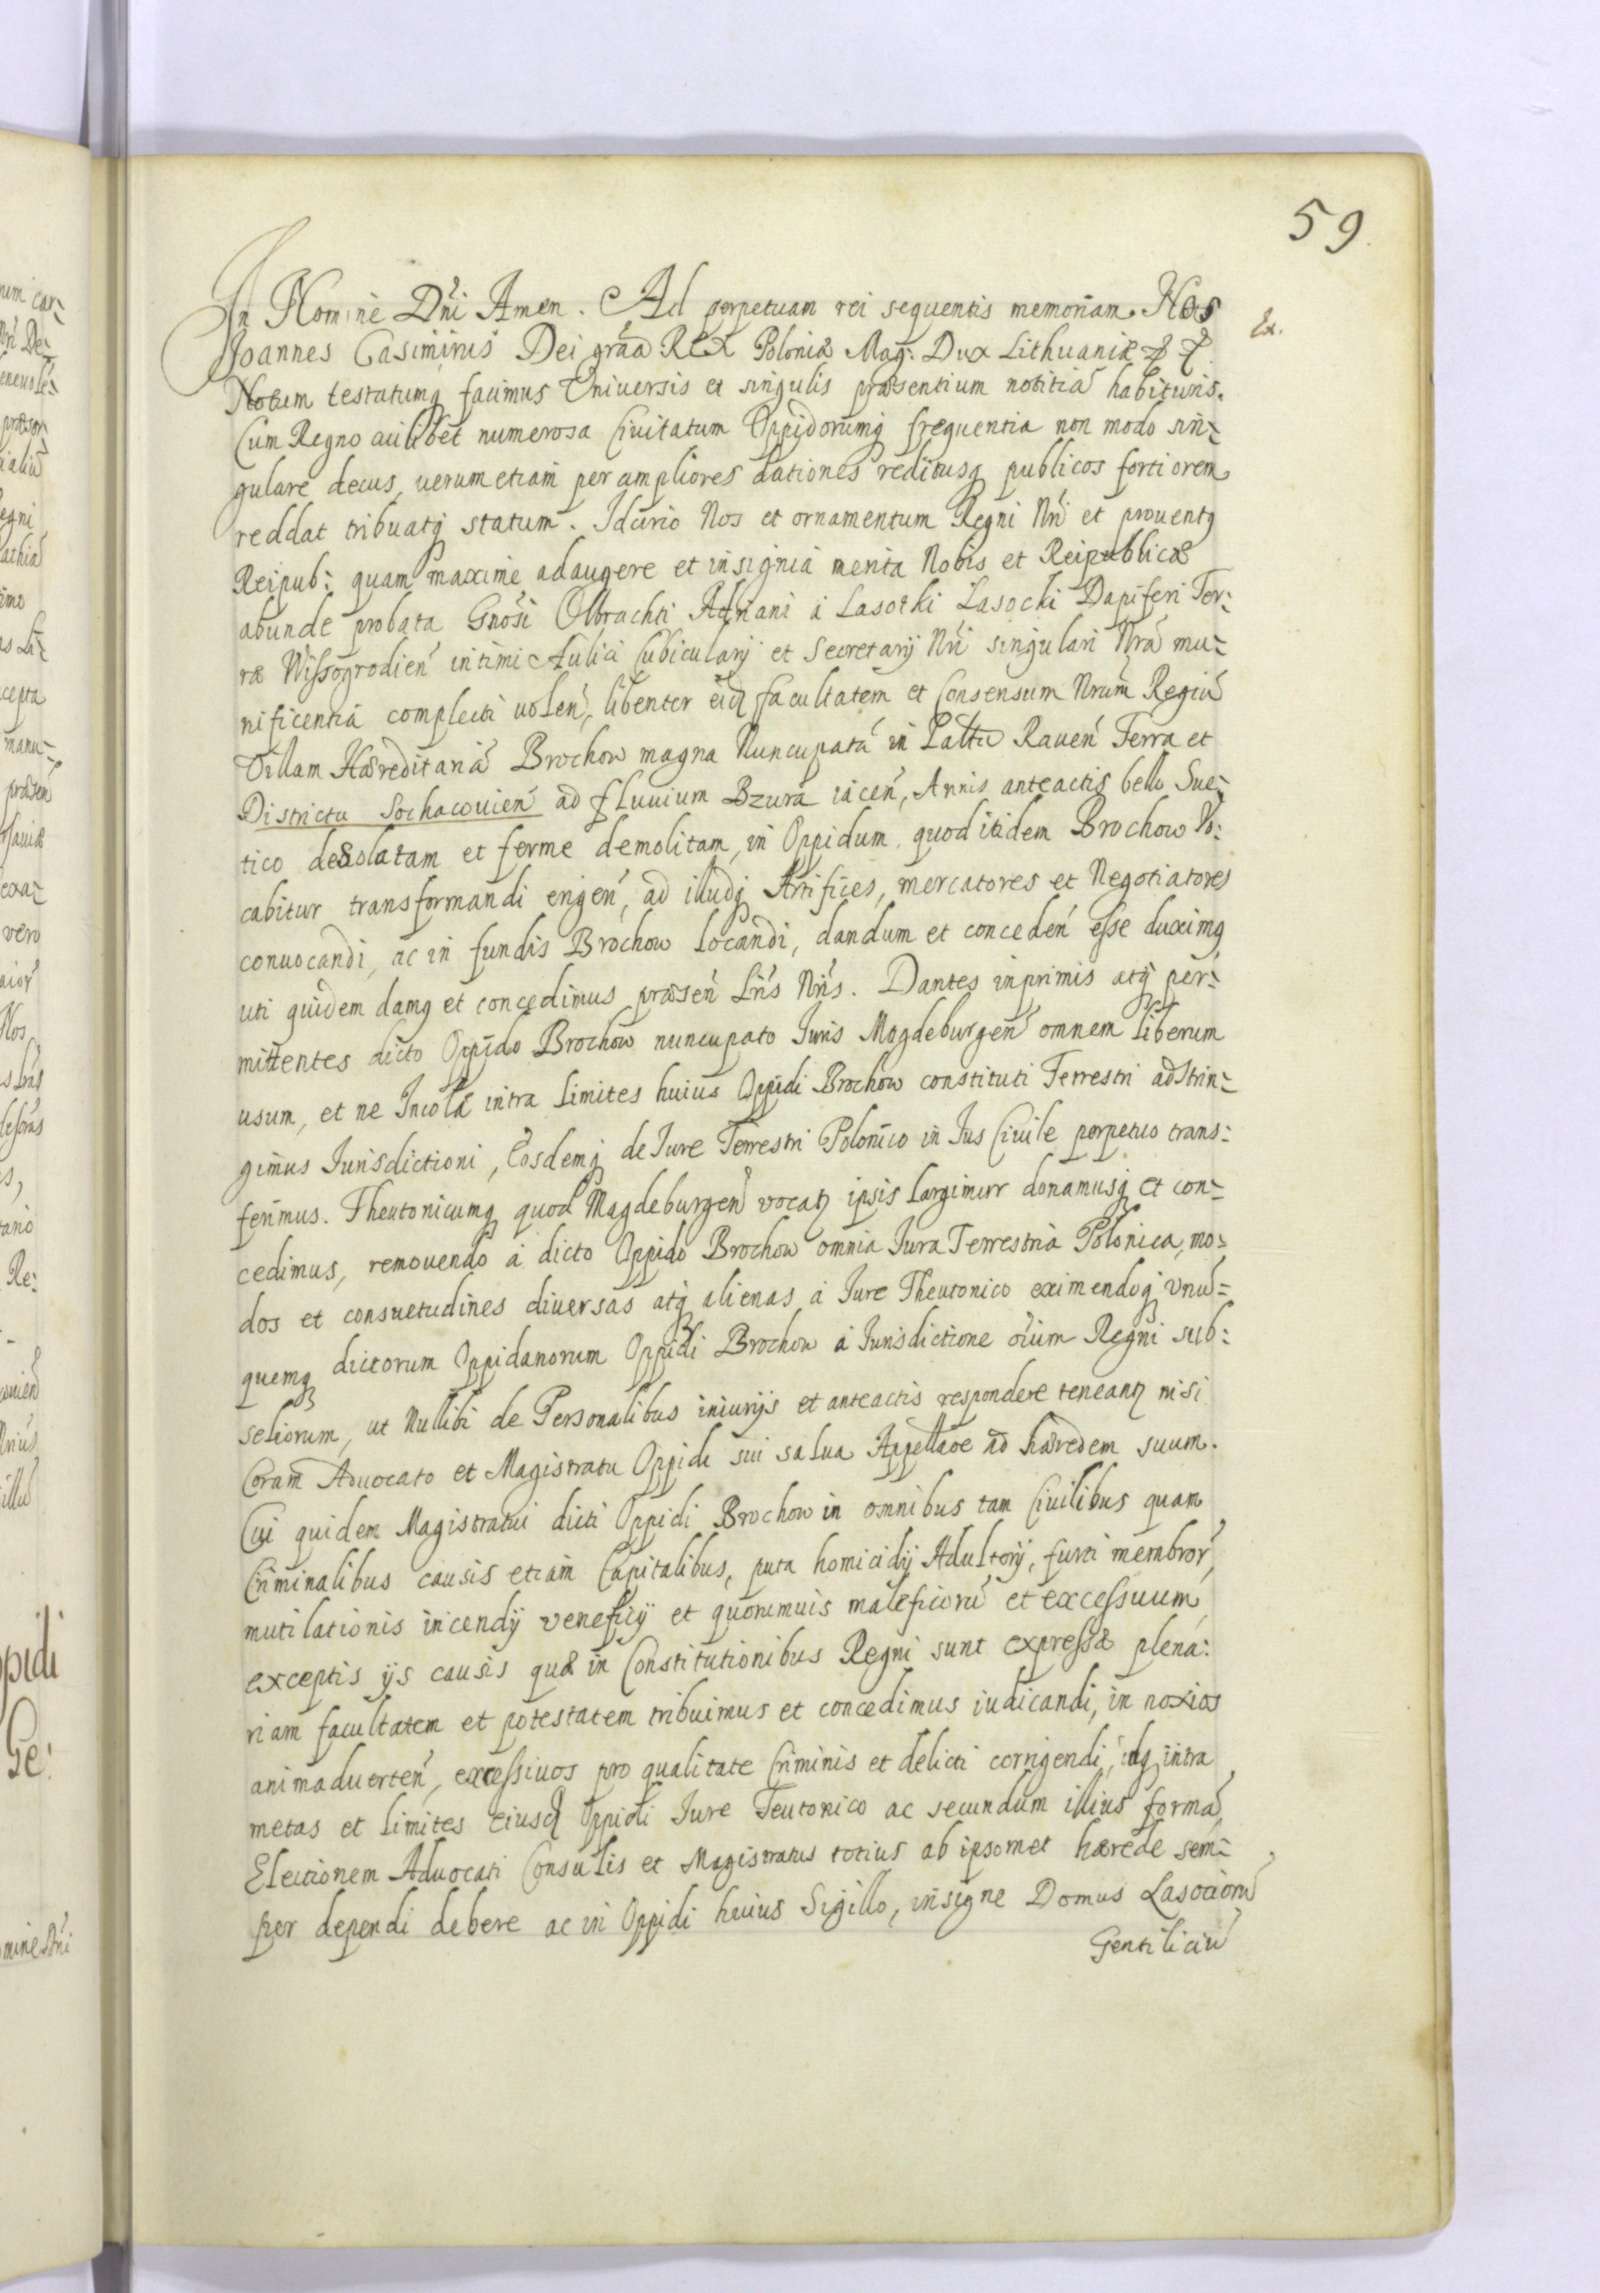 59
In Nomine Dñi Amen. Ad perpetuam rei sequentis memoriam. Nos
Ex.
Joannes Casimirus Dei grãa Rex Poloniæ Mag: Dux Lithuaniæ
Notum testatumq facimus Universis et singulis præsentium notitiã habituris.
Cum Regno cuilibet numerosa Civitatum Oppidorumq frequentia non modo sin-
gulare decus, verum etiam per ampliores dationes reditusq publicos fortiorem
reddat tribuatq statum. Idcirio Nos et ornamentum Regni Nri et proventq
Reipub: quam maxime adaugere et insignia merita Nobis et Reipublicæ
abunde probata Gnosi Olbrachti Adriani à Lasotki Lasocki Dapiferi Ter:
ræ Wissogrodien intimi Aulici Cubicularij et Secretarij Nri singulari Nrã mu-
nificentiã complecti volen, libenter eid facultatem et Consensum Nrum Regiũ
Villam Hæreditariã Brochow magna Nuncupatã in Pallu Raven Terra et
Districtu Sochacovien ad fluvium Bzura iacen, Annis anteactis bello Sue-
tico desolatam et ferme demolitam, in Oppidum, quod itidem Brochow Vo:
cabitur transformandi erigen, ad illudq Artifices, mercatores et Negotiatores
convocandi, ac in fundis Brochow locandi, dandum et conceden esse duximq
uti quidem damq et concedimus præsen Lris Nris. Dantes inprimis atq per-
mittentes dicto Oppido Brochow nuncupato Juris Magdeburgen omnem liberum
usum, et ne Incolæ intra limites huius Oppidi Brochow constituti Terrestri adstrin-
gimus Jurisdictioni, Eosdemq de Jure Terrestri Polonico in Jus Civile perpetuo trans:
ferimus. Theutonicumq quod Magdeburgen vocat ipsis largimur donamusq et con-
cedimus, removendo à dicto Oppido Brochow omnia Jura Terrestria Polonica, mo-
dos et consuetudines diversas atq alienas à Jure Theutonico eximendoq unũ-
quemq dictorum Oppidanorum Oppidi Brochow à Jurisdictione oium Regni sub:
seliorum, ut Nullibi de Personalibus iniurijs et anteactis respondere teneant nisi
Coram Advocato et Magistratu Oppidi sui salva Appellaoe ad hæredem suum.
Cui quidem Magistratui dicti Oppidi Brochow in omnibus tam Civilibus quam
Criminalibus causis etiam Capitalibus, puta homicidij Adulterij, furti membror,
mutilationis incendij veneficij et quorumvis maleficiorũ et excessuum,
exceptis ijs causis quæ in Constitutionibus Regni sunt expressæ plena:
riam facultatem et potestatem tribuimus et concedimus iudicandi, in noxios
animadverten, excessivos pro qualitate Criminis et delicti corrigendi, idq intra
metas et limites eiusd Oppidi Jure Teutonico ac secundum illius formã,
Electionem Advocati Consulis et Magistratus totius ab ipsomet hærede sem-
per dependi debere ac in Oppidi huius Sigillo, insigne Domus Lasociorũ
Gentiliciũ